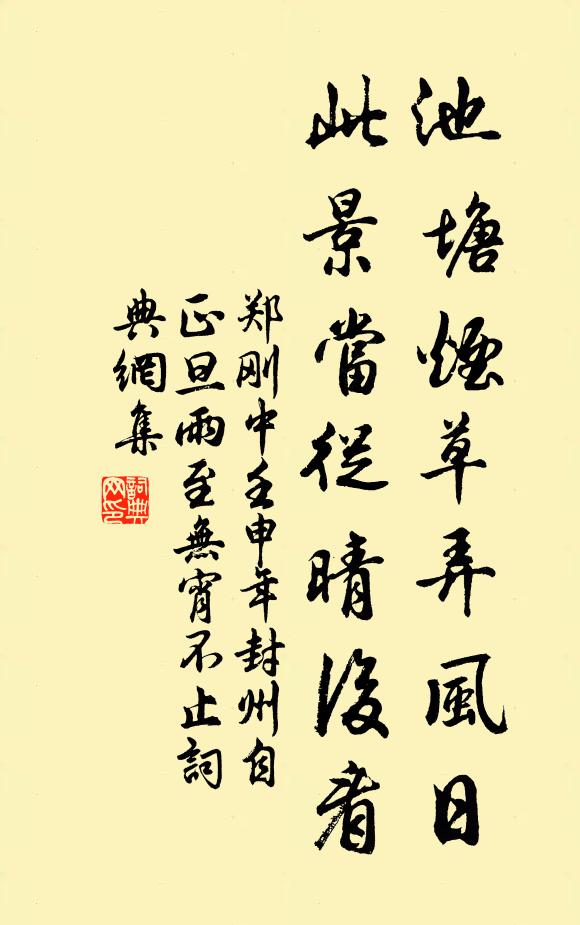 池塘煙草弄風日
此景當從晴後看
郑刚中壬申年封州自
正旦雨至無宵不止詞
典網集
詞典網印